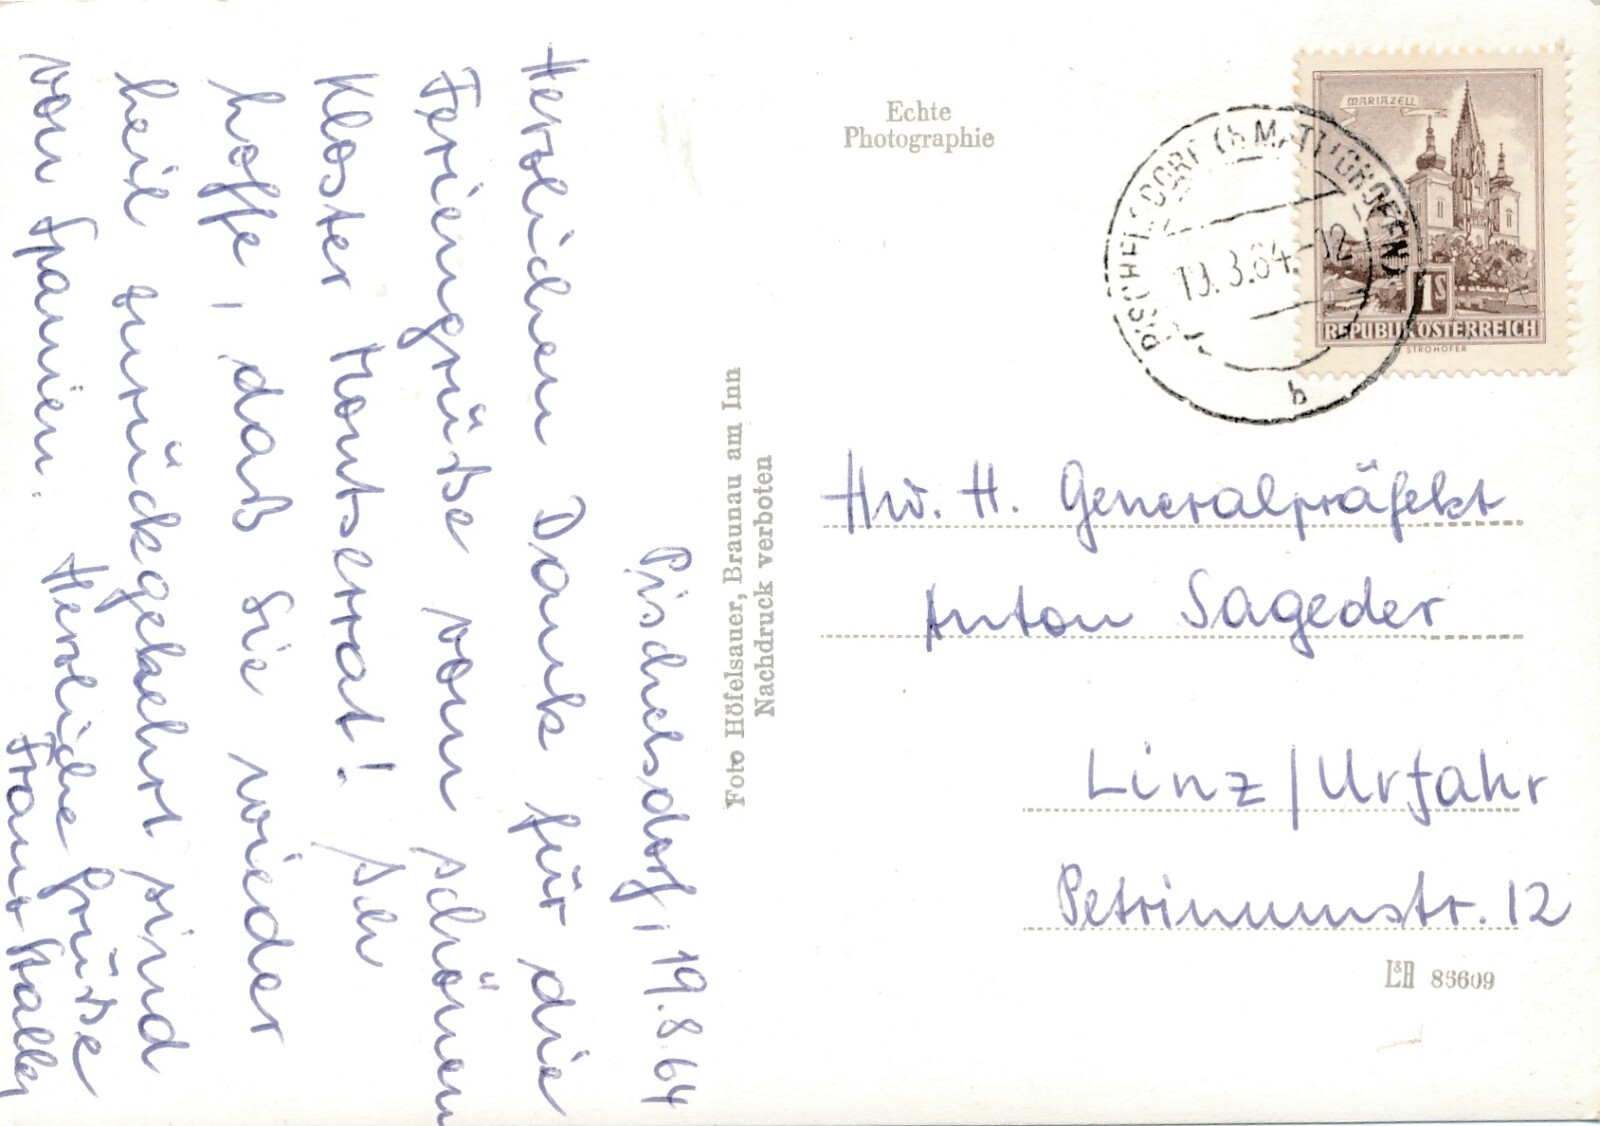 Pischelsdorf, 19.8.64
Herzlichen Dank für die
Feriengrüße vom schönen
Kloster Montserrat! Ich
hoffe, daß Sie wieder
heil zurückgekehrt sind
von Spanien. Herzliche Grüße
Franz
Echte
Photographie
Foto Höfelsauer, Braunau am Inn
Nachdruck verboten
MARIAZELL
1S
REPUBLIK ÖSTERREICH
STROHOFER
PISCHELSDORF (b MATTIGHOFEN)
19.8.64.-12
b
Hw. H. Generalpräfekt
Anton Sageder
Linz/Urfahr
Petrinumstr. 12
L&H 85609